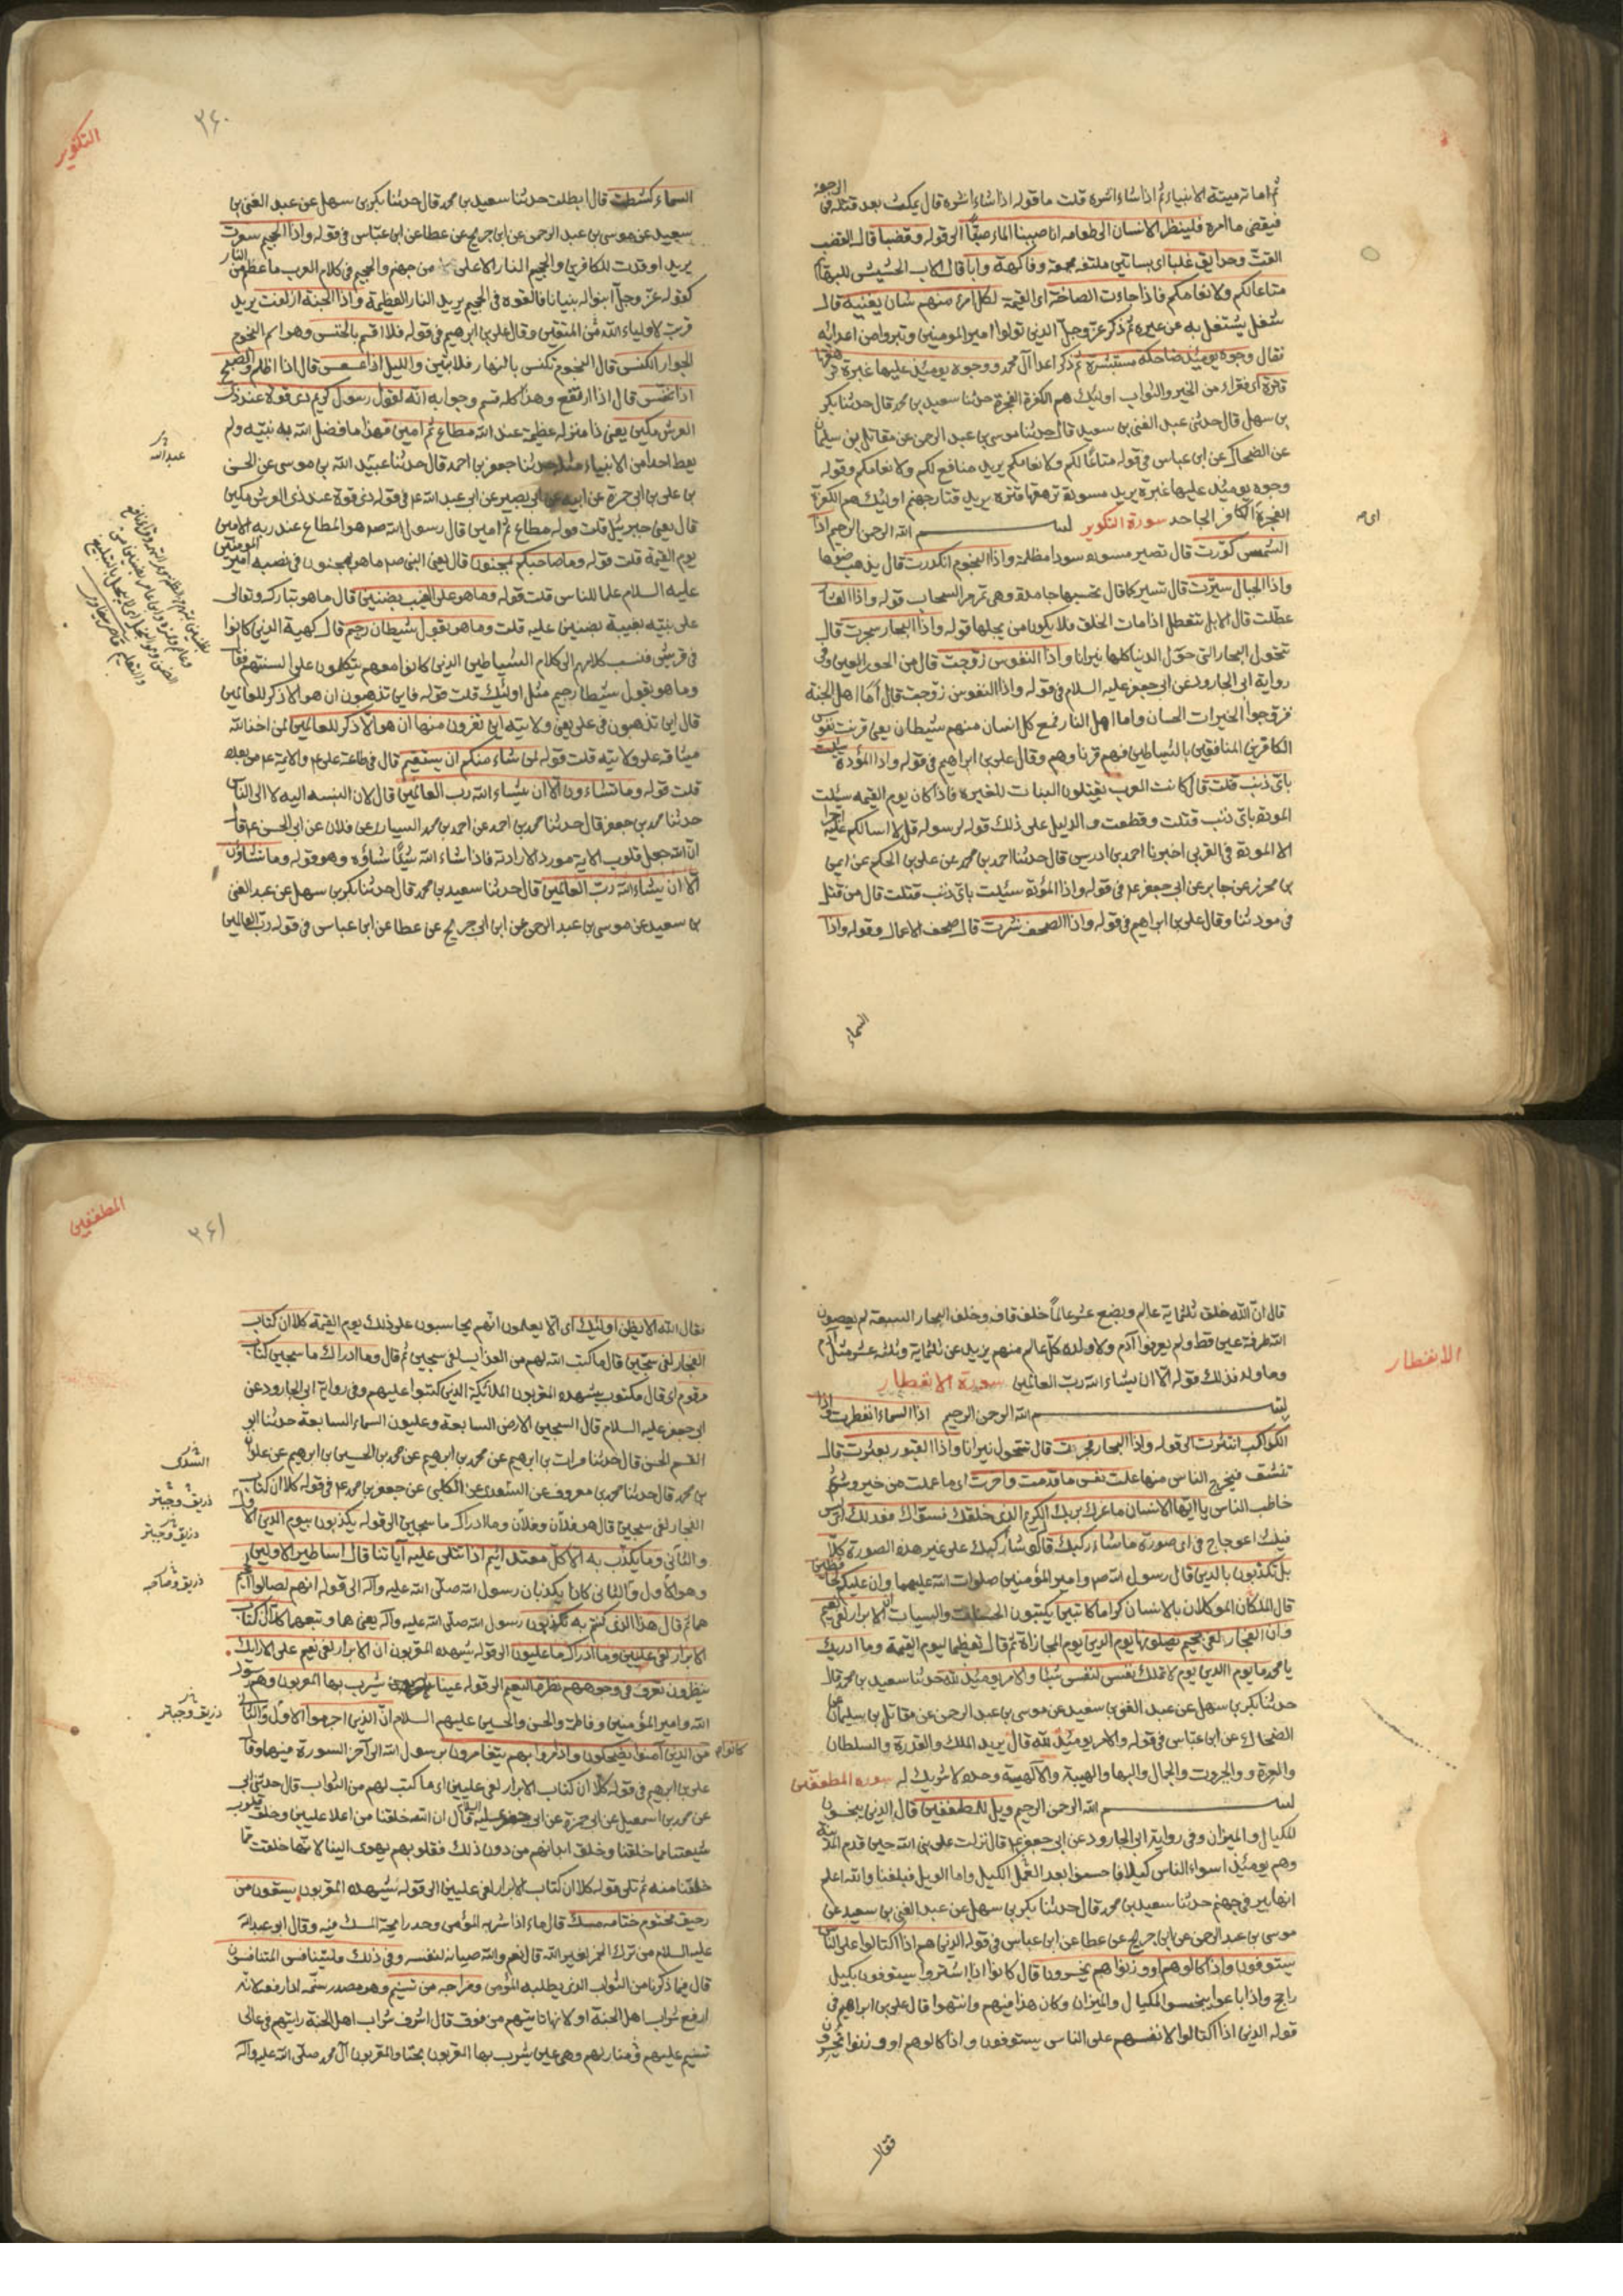 ثم اماته ميتة الانبياء ثم اذا شاء انشره قلت ما قوله اذا شاء انشره قال يمكث بعد قتله فى الرجعة
فيقضى ما امره فلينظر الانسان الى طعامه انا صببنا الماء صبّاً الى قوله وقضبا قال القضب
القتّ وحدايق غلبا اى بساتين ملتفه مجمعة وفاكهة وابا قال الاب الحشيش للبهائم
متاعا لكم ولانعامكم فاذا جاءت الصاخة اى القيمة لكل امرئ منهم شان يغنيه قال
شغل يشتغل به عن غيره ثم ذكر عزّ وجلّ الذين تولوا امير المومنين وتبروا من اعدائه
فقال وجوه يوميذ ضاحكه مستبشرة ثم ذكر اعداء آل محمد ووجوه يوميذ عليها غبرة ترهقها
قترة اى فقراء من الخير والثواب اوليك هم الكفرة الفجرة حدثنا سعيد بن محمد قال حدثنا بكر
بن سهل قال حدثنى عبد الغنى بن سعيد قال حدثنا موسى بن عبد الرحمن عن مقاتل بن سليمان
عن الضحاك عن ابن عباس فى قوله متاعا لكم ولانعامكم يريد منافع لكم ولانعامكم وقوله
وجوه يوميذ عليها غبرة يريد مسودة ترهقها قترة يريد قتار جهنم اوليك هم الكفرة
الفجرة الكافر الجاحد سورة التكوير بسم الله الرحمن الرحيم اذا
اى ص
الشمس كورّت قال تصير مسوده سودا مظلمة واذا النجوم انكدرت قال يذهب ضوها
واذا الجبال سيرّت قال تسير كما قال تحسبها جامدة وهى تمر مر السحاب قوله واذا العشار
عطّلت قال الابل تتعطل اذا مات الخلق فلا يكون من يحلبها قوله واذا البحار سجرت قال
تتحول البحار التى حول الدنيا كلها نيرانا واذا النفوس زوّجت قال من الحور العين وفى
رواية ابى الجارود عن ابى جعفر عليه السلام فى قوله واذا النفوس زوجت قال أما اهل الجنة
فزوجوا الخيرات الحسان واما اهل النار فمع كل انسان منهم شيطان يعنى قرنت نفوس
الكافرين المنافقين بالشياطين فهم قرناوهم وقال على بن ابراهيم فى قوله واذا الموؤدة سئلت
باىّ ذنب قتلت قال كانت العرب يقتلون البنات للغيره فاذا كان يوم القيمه سئلت
الموده باىّ ذنب قتلت وقطعت والدليل على ذلك قوله لرسوله قل لا اسالكم عليه اجرا
الا المودة فى القربى اخبرنا احمد بن ادريس قال حدثنا احمد بن محمد عن على بن الحكم عن ايمن
بن محرز عن جابر عن ابى جعفر ع فى قوله واذا المودة سئلت باىّ ذنب قتلت قال من قتل
فى مودتنا وقال على بن ابراهيم فى قوله واذا الصحف نشرت قال صحف الاعمال وقوله واذا
السماء
التكوير
۳۶۰
السماء كشطت قال ابطلت حدثنا سعيد بن محمد قال حدثنا بكر بن سهل عن عبد الغنى بن
سعيد عن موسى بن عبد الرحمن عن ابن جريح عن عطا عن ابن عبّاس فى قوله واذا الجحيم سعرت
يريد اوقدت للكافرين والجحيم النار الاعلى من جهنم والجحيم فى كلام العرب ما عظم من النار
كقوله عزّ وجلّ ابنوا له بنيانا فالقوه فى الجحيم يريد النار العظيمة واذا الجنة ازلفت يريد
قربت لاولياء الله من المتقين وقال على بن ابرهيم فى قوله فلا اقسم بالخنس وهو اسم النجوم
الجوار الكنس قال النجوم تكنس بالنهار فلا تبين والليل اذا عسعس قال اذا اظلم والصبح
اذا تنفّس قال اذا ارتفع وهذا كله قسم وجوابه انّه لقول رسول كريم ذى قوة عند ذى
العرش مكين يعنى ذا منزله عظيمة عند الله مطاع ثم امين فهذا ما فضل الله به نبيّه ولم
يعط احدا من الانبياء مثله حدثنا جعفر بن احمد قال حدثنا عبيد الله بن موسى عن الحسن
عبد الله
بن على بن ابى حمزة عن ابيه عن ابى بصير عن ابى عبد الله ع فى قوله ذى قوة عند ذى العرش مكين
قال يعنى جبرييل قلت قوله مطاع ثم امين قال رسول الله ص هو المطاع عند ربه الامين
يوم القيمة قلت قوله وما صاحبكم بمجنون قال يعنى النبى ص ما هو بمجنون فى نصبه امير المومنين
عليه السلام علما للناس قلت قوله وما هو على الغيب بضنين قال ما هو تبارك وتعالى
على نبيّه بغيبة بضنين عليه قلت وما هو بقول شيطان رجيم قال كهنة الذين كانوا
فى قريش فنسب كلامهم الى كلام الشياطين الذين كانوا معهم يتكلمون على السنتهم فقال
وما هو بقول شيطان رجيم مثل اوليك قلت قوله فاين تذهبون ان هو الا ذكر للعالمين
قال اين تذهبون فى على يعنى ولايته اين تفرون منها ان هو الّا ذكر للعالمين لمن اخذ الله
ميثاقه على ولايته قلت قوله لمن شاء منكم ان يستقيم قال فى طاعة على ع والايمة ع من بعده
قلت قوله وما تشاءون الّا ان يشاء الله رب العالمين قال لان المشيه اليه لا الى الناس
حدثنا محمد بن جعفر قال حدثنا محمد بن احمد عن احمد بن محمد السيارى عن فلان عن ابى الحسن ع قال
ان الله جعل قلوب الايمة مورد الارادته فاذا شاء الله شيئاً شاؤه وهو قوله وما تشاؤن
الّا ان يشاء الله ربّ العالمين قال حدثنا سعيد بن محمد قال حدثنا بكر بن سهل عن عبد الغنى
بن سعيد عن موسى بن عبد الرحمن عن ابن جريح عن عطا عن ابن عباس فى قوله ربّ العالمين
الانفطار
قال انّ الله خلق ثلثماية عالم وبضع عشر عالماً خلف قاف وخلف البحار السبعة لم يعصون
الله طرفة عين قط ولم يعرفوا آدم ولا ولده كلّ عالم منهم يزيد عن ثلثماية وثلثه عشر مثل آدم
وما ولد فذلك قوله الّا ان يشاء الله ربّ العالمين سورة الانفطار
بسم الله الرحمن الرحيم اذا السماء انفطرت واذا
الكواكب انتثرت الى قوله واذا البحار فجرت قال تتحول نيرانا واذا القبور بعثرت قال
تنشق فيخرج الناس منها علمت نفس ما قدمت واخرت اى ما عملت من خير وشر ثم
خاطب الناس يا ايّها الانسان ما غرك بربك الكريم الذى خلقك فسوّاك فعدلك اى ليس
فيك اعوجاج فى اى صورة ما شاء ركبك قال لو شاء ركبك على غير هذه الصورة كلّا
بل تكذّبون بالدين قال رسول الله ص وامير المؤمنين صلوات الله عليهما وان عليكم لحافظين
قال الملكان الموكلان بالانسان كراما كاتبين يكتبون الحسنات والسيات ان الابرار لفى نعيم
وان الفجار لفى جحيم يصلونها يوم الدين يوم المجازاة ثم قال تعظيما ليوم القيمة وما ادريك
يا محمد ما يوم الدين يوم لا تملك نفس لنفس شيئا والامر يوميذ لله حدثنا سعيد بن محمد قال
حدثنا بكر بن سهل عن عبد الغنى بن سعيد عن موسى بن عبد الرحمن عن مقاتل بن سليمان عن
الضحاك عن ابن عبّاس فى قوله والامر يوميذ لله قال يريد الملك والقدرة والسلطان
والعزة والجبروت والجمال والبها والهيبة والالهية وحده لا شريك له سوره المطففين
بسم الله الرحمن الرحيم ويل للمطففين قال الذين يبخسون
للكيال والميزان وفى رواية ابى الجارود عن ابى جعفر ع قال نزلت على نبى الله حين قدم المدينة
وهم يوميذ اسواء الناس كيلا فاحسنوا بعد العمل الكيل واما الويل فبلغنا والله اعلم
انها بير فى جهنم حدثنا سعيد بن محمد قال حدثنا بكر بن سهل عن عبد الغنى بن سعيد عن
موسى بن عبد الرحمن عن ابن جريح عن عطا عن ابن عباس فى قوله الذين هم اذا اكتالوا على الناس
يستوفون واذا كالوهم او وزنوا هم يخسرون قال كانوا اذا اشتروا يستوفون بكيل
راجح واذا باعوا يبخسوا المكيال والميزان وكان هذا فيهم وانتهوا قال على بن ابراهيم فى
قوله الذين اذا اكتالوا لانفسهم على الناس يستوفون واذا كالوهم او وزنوا يخسرون
فقال
المطففين
۳۶۱
فقال الله الا يظن اوليك اى الا يعلمون انّهم يحاسبون على ذلك يوم القيمة كلا ان كتاب
الفجار لفى سجّين قال ما كتب الله لهم من العذاب لفى سجين ثم قال وما ادراك ما سجين كتاب
مرقوم اى قال مكتوب يشهده المقربون الملائكة الذين كتبوا عليهم وفى رواية ابى الجارود عن
ابى جعفر عليه السلام قال السجين الارض السابعة وعليون السماء السابعة حدثنا ابو
القسم الحسن قال حدثنا فرات بن ابرهيم عن محمد بن ابرهيم عن محمد بن الحسين بن ابرهيم عن علوان
بن محمد قال حدثنا محمد بن معروف عن السّندى عن الكلبى عن جعفر بن محمد ع فى قوله كلا ان كتاب
الفجار لفى سجين قال هو فلان وفلان وما ادراك ما سجين الى قوله يكذبون بيوم الدين الاول
زريق وحبتر
والثانى وما يكذّب به الا كلّ معتد اثيم اذا تتلى عليه آياتنا قال اساطير الاولين
وهو الاول والثانى كانا يكذبان رسول الله صلّى الله عليه وآله الى قوله انهم لصالوا الجحيم
زريق وصاحبه
هما ثم قال هذا الذى كنتم به تكذبون رسول الله صلّى الله عليه وآله يعنى هما وتبعهما كلا ان كتاب
الابرار لفى عليين وما ادراك ما عليون الى قوله يشهده المقربون ان الابرار لفى نعيم على الارائك
ينظرون تعرف فى وجوههم نظرة النعيم الى قوله عينا يشرب بها المقربون وهم رسول
الله وامير المؤمنين وفاطمة والحسن والحسين عليهم السلام انّ الذين اجرموا الاول والثانى
زريق وحبتر
كانوا من الذين آمنوا يضحكون واذا مروا بهم يتغامزون برسول الله الى آخر السورة فيهما وقال
على بن ابرهيم فى قوله كلّا ان كتاب الابرار لفى عليين اى ما كتب لهم من الثواب قال حدثنى ابى
عن محمد بن اسمعيل عن ابى حمزة عن ابى جعفر عليه السلام قال ان الله خلقنا من اعلا عليين وخلق قلوب
شيعتنا مما خلقنا وخلق ابدانهم من دون ذلك فقلوبهم يهوى الينا لانّها خلقت ممّا
خلقنا منه ثم تلى قوله كلا ان كتاب الابرار لفى عليين الى قوله يشهده المقربون يسقون من
رحيق مختوم ختامه مسك قال ماء اذا شربه المؤمن وجد رايحة المسك فيه وقال ابو عبد الله
عليه السلام من ترك الخمر لغير الله قال نعم والله صيانه لنفسه وفى ذلك فليتنافس المتنافسون
قال فيما ذكرنا من الثواب الذى يطلبه المؤمن ومزاجه من تسنيم وهو مصدر سنّمه اذا رفعه لانه
ارفع شراب اهل الجنة او لانها تاتيهم من فوق قال اشرف شراب اهل الجنة ياتيهم فى عالى
تسنيم عليهم فى منازلهم وهى عين يشرب بها المقربون بحتا والمقربون آل محمد صلّى الله عليه وآله